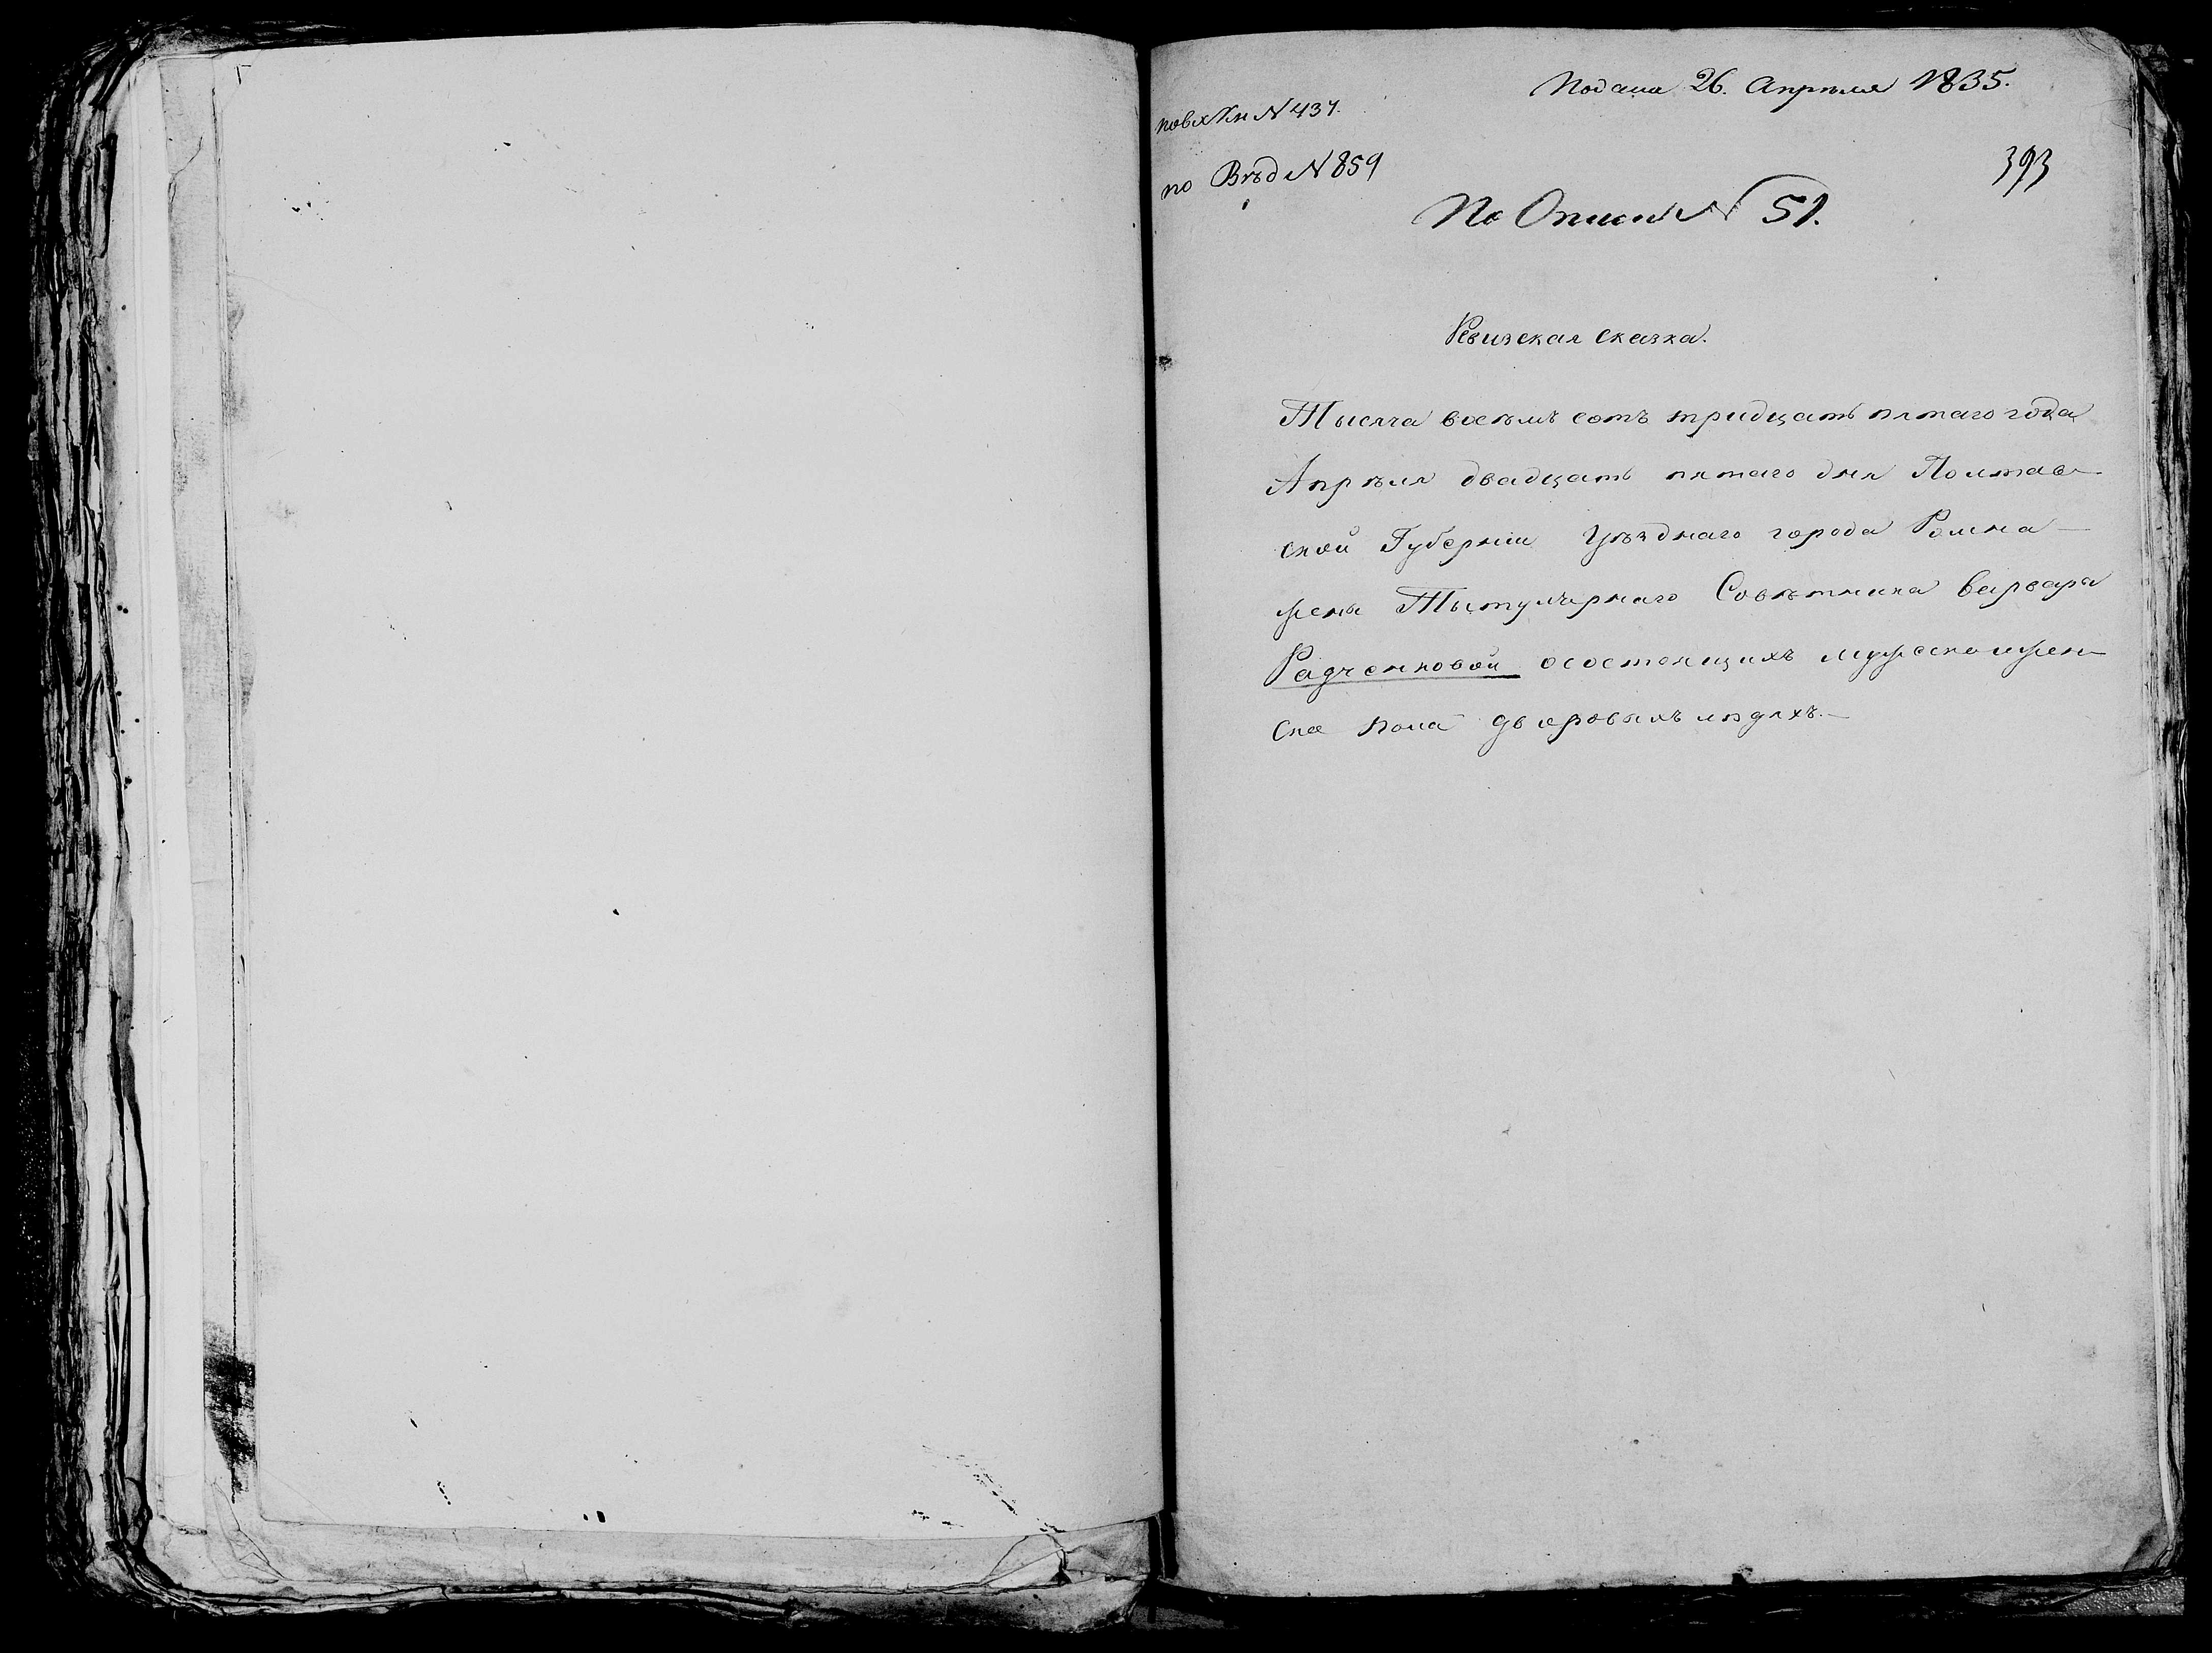 Подана 26. Апреля 1835.
по вх Кн N 437.
393
по Вѣд N 859
По Описи N 51.
Ревизская сказка.
Тысяча восемь сотъ тридцать пятаго года
Апрѣля двадцать пятаго дня Полтав-
ской Губерніи Уѣзднаго города Ромна-
жены Тытулярнаго Совѣтника Варвары
Радченковой осостоящихъ мужеска ижен-
ска пола дворовыхъ людяхъ.-